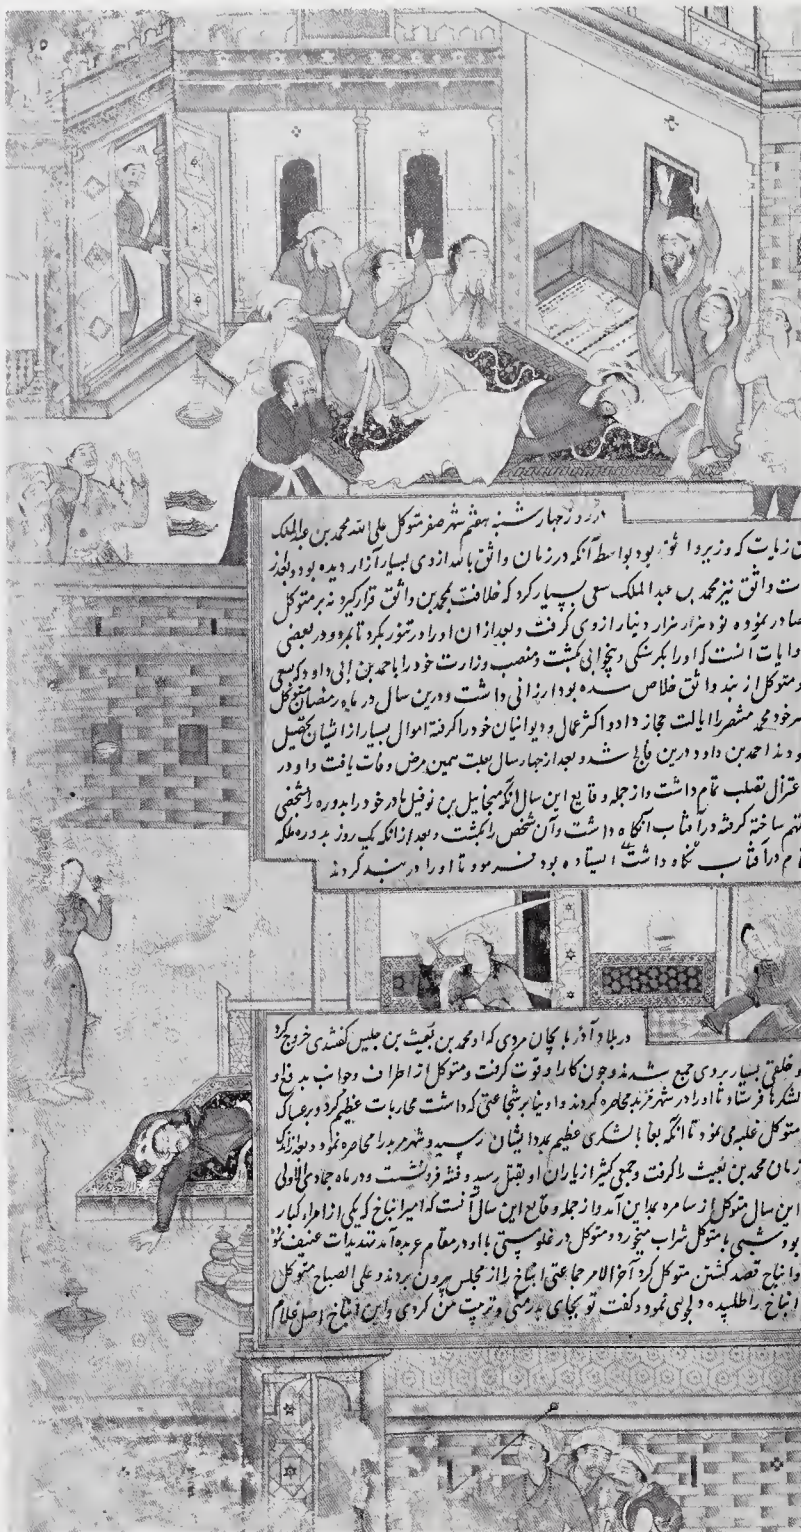 در روز چهارشنبه هفتم شهر صفر متوکل علی الله محمد بن عبدالملک
زیات که وزیر واثق بود بواسطه آنکه در زمان واثق بالله از وی بسیار آزار دیده بود و بعد از
واثق نیز محمد بن عبدالملک سعی بسیار کرد که خلافت بمحمد بن واثق قرار گیرد نه بر متوکل
نموده بود هزار هزار دینار از وی گرفت و بعد از ان او را در تنور بکرد تا بمرد و در بعضی
آنست که او را بگرسنگی و بیخوابی بکشت و منصب وزارت خود را باحمد بن ابی داود که بسعی
متوکل از بند واثق خلاص شده بود ارزانی داشت و درین سال در ماه رمضان متوکل
خود محمد منتصر را ایالت حجاز داد و اکثر عمال و دیوانیان خود را گرفته اموال بسیار از ایشان تحصیل
احمد بن داود درین فالج شد و بعد از چهار سال بعلت همین مرض وفات یافت و او در
اعتزال تصلب تمام داشت و از جمله وقایع این سال آنکه میخاییل بن نوفیل مادر خود را بدوره را بشخصی
متهم ساخته گرفته در آفتاب نگاه داشت و آن شخص را بکشت و بعد از انکه یک روز بدوره ملکه
در آفتاب نگاه داشت ایستاده بود فرمود تا او را در بند کردند
در بلاد آذربایجان مردی که او محمد بن بعیث بن جلیس گفتندی خروج کرد
و خلقی بسیار بر وی جمع شدند و چون کار او قوت گرفت و متوکل از اطراف و جوانب بدفع او
لشکرها فرستاد تا او را در شهر مرند محاصره کردند و او بنا بر شجاعتی که داشت محاربات عظیم کرد و بر عساکر
متوکل غلبه می نمود تا آنکه بغا با لشکری عظیم بمدد ایشان رسید و شهر مرند را محاصره نمود و بعد از اندک
زمان محمد بن بعیث را گرفت و جمعی کثیر از یاران او بقتل رسید و فتنه فرو نشست و در ماه جمادی الاولی
این سال متوکل از سامره بمداین آمد و از جمله وقایع این سال آنست که امیر ایتاخ که یکی از امراء کبار
بود شبی با متوکل شراب میخورد و متوکل در غلو مستی با او در مقام عربده آمد تهدیدات عنیف نمود
و ایتاخ قصد کشتن متوکل کرد آخر الامر جماعتی ایتاخ را از مجلس بیرون بردند و علی الصباح متوکل
ایتاخ را طلبیده دلجویی نمود و گفت تو بجای پدر منی و تربیت من کردی و این ایتاخ اصل غلام